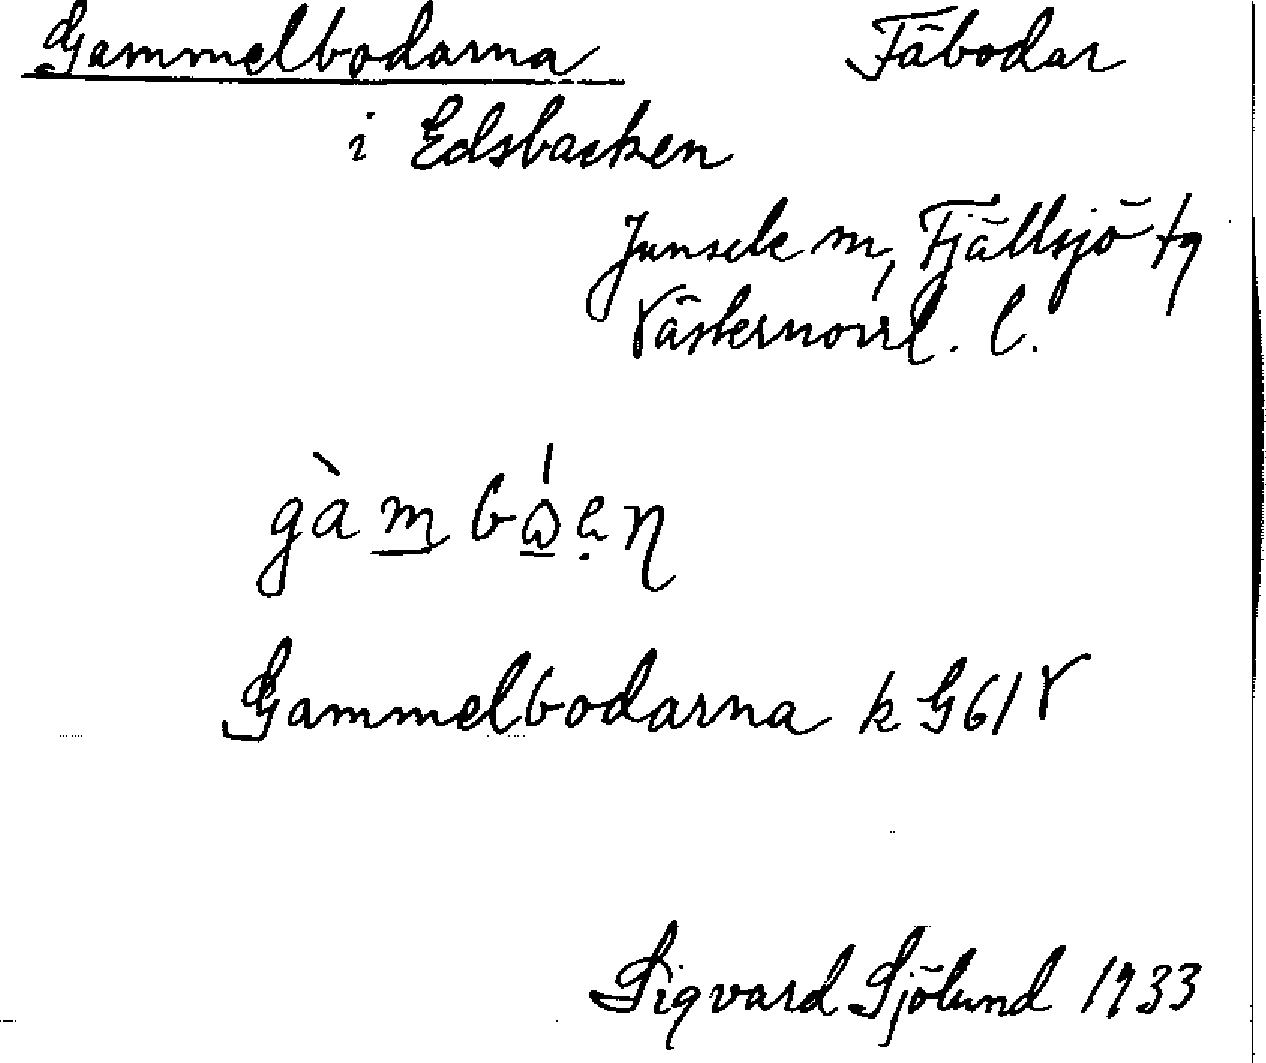 Gammelbodarna Fäbodar
i Edsbacken
Junsele sn, Fjällsjö tg
Västernorrl. l.
Gammelbodarna k G61V
Sigvard Sjölund 1933